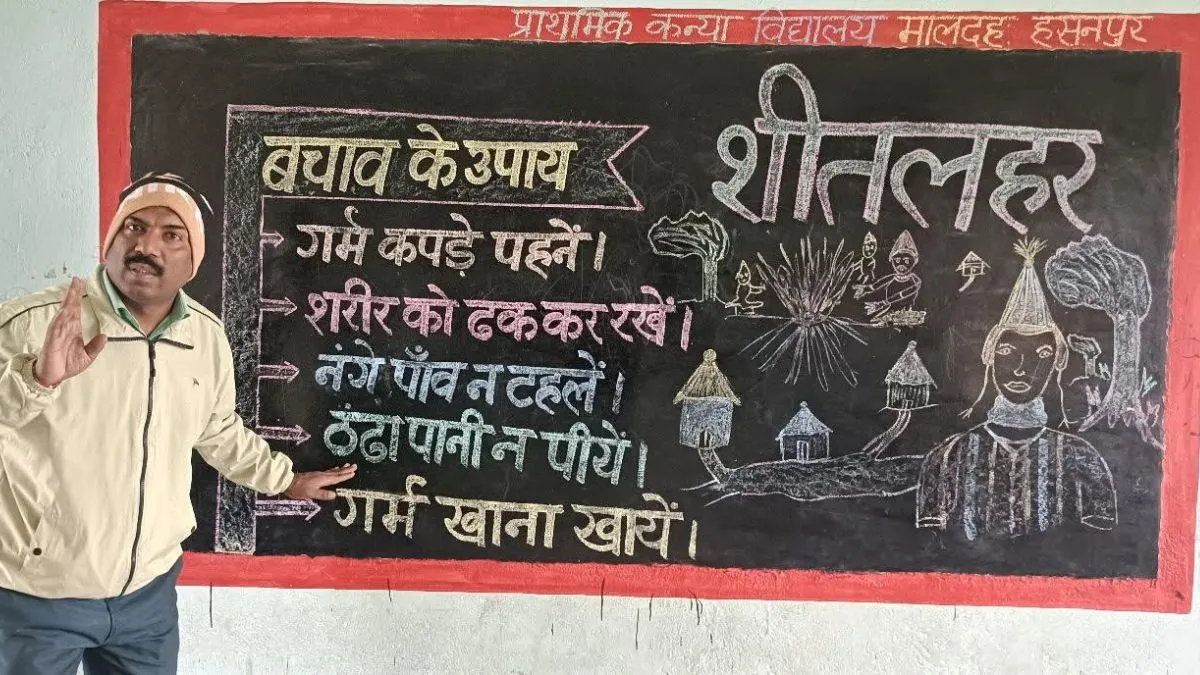 प्राथमिक कन्या विद्यालय मालदह हसनपुर
शीतलहर
बचाव के उपाय
गर्म कपड़े पहनें।
शरीर को ढक कर रखें।
नंगे पाँव न टहलें।
ठंढा पानी न पीयें।
गर्म खाना खायें।